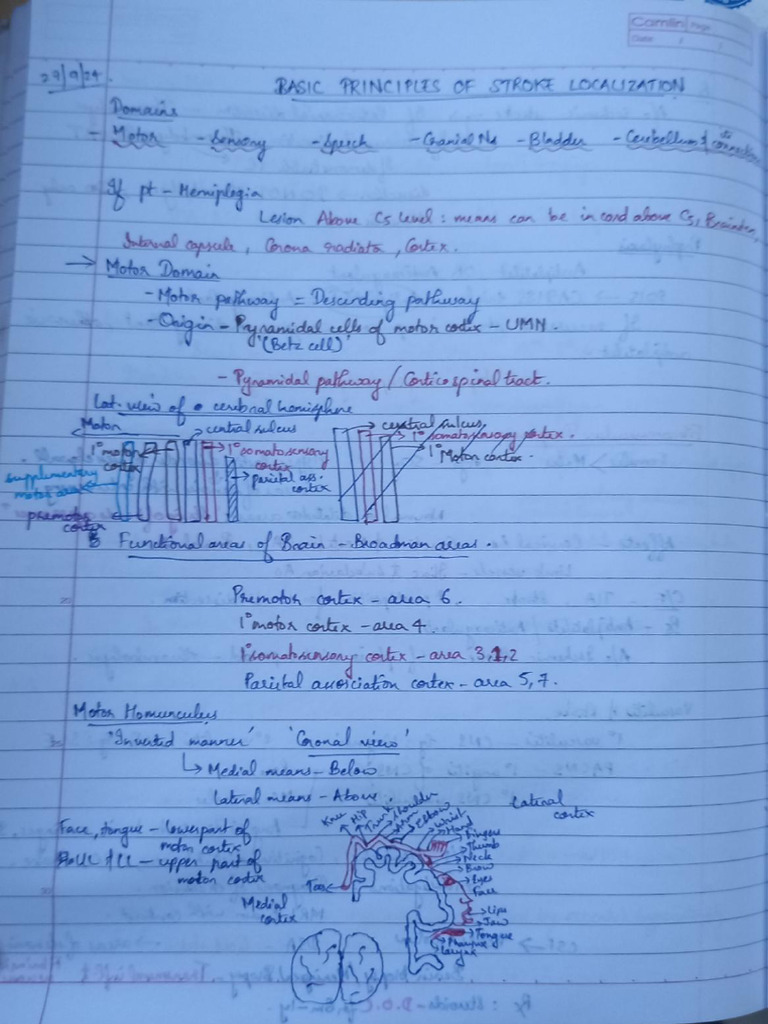 Camlin Page
Date
27/9/24.
BASIC PRINCIPLES OF STROKE LOCALIZATION
Domains
- Motor - Sensory - Speech - Cranial Ns - Bladder - Cerebellum & its connections
If pt - Hemiplegia
Lesion Above C5 level : means can be in cord above C5, Brainstem,
Internal capsule, Corona radiata, Cortex.
→ Motor Domain
- Motor pathway = Descending pathway
- Origin - Pyramidal cells of motor cortex - UMN.
(Betz cell)
- Pyramidal pathway / Corticospinal tract.
Lat. view of a cerebral hemisphere
Motor
central sulcus
1° motor cortex
1° somatosensory cortex
parietal ass. cortex
supplementary motor area
premotor cortex
central sulcus
1° somatosensory cortex.
1° Motor cortex.
Functional areas of Brain - Broadman areas.
Premotor cortex - area 6.
1° motor cortex - area 4.
1° somatosensory cortex - area 3,1,2
Parietal association cortex - area 5,7.
Motor Homunculus
'Inverted manner' 'Coronal view'
↳ Medial means - Below
Lateral means - Above
Face, tongue - lower part of
motor cortex
UL & LL - upper part of
motor cortex
Lateral
cortex
Medial
cortex
Toes
Knee
Hip
Trunk
Shoulder
Arm
Elbow
Wrist
Hand
Fingers
Thumb
Neck
Brow
Eyes
Face
Lips
Jaw
Tongue
Pharynx
Larynx